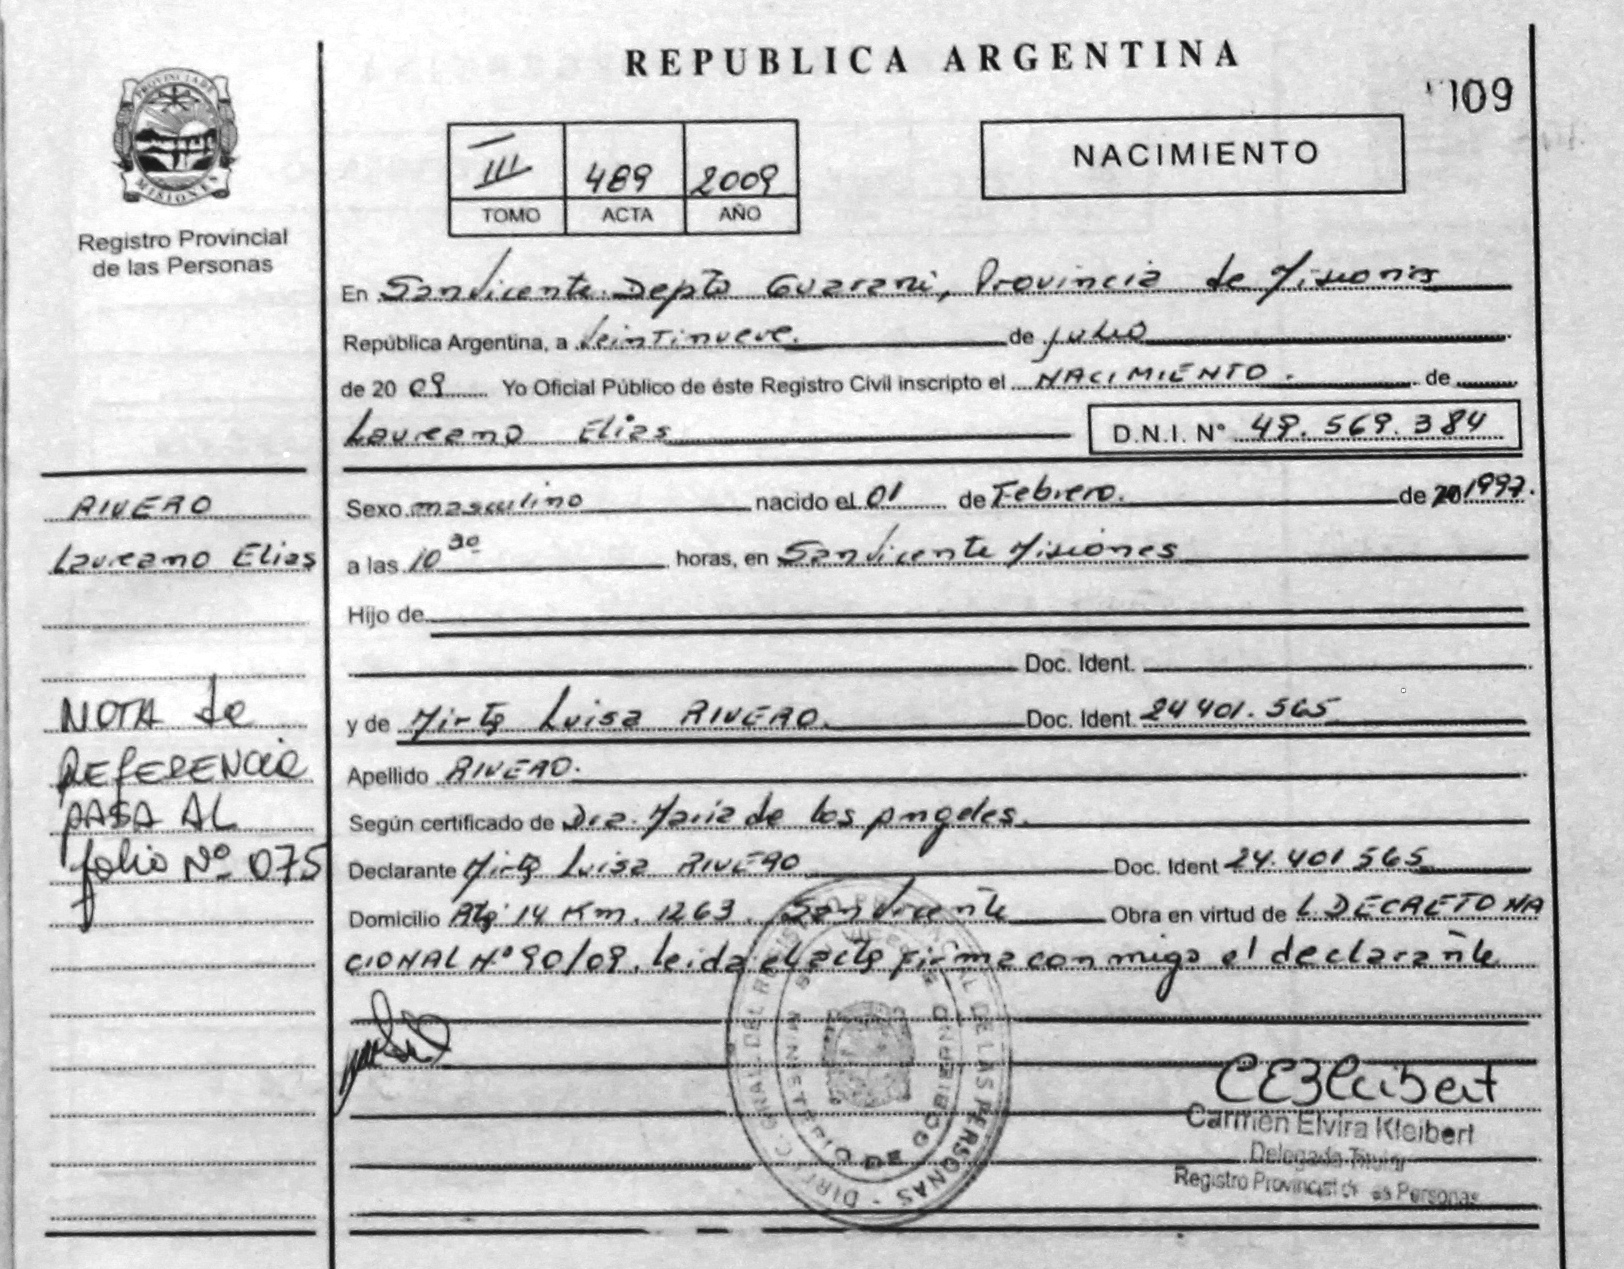 REPUBLICA ARGENTINA
109
PROVINCIA DE
MISIONES
Registro Provincial
de las Personas
III 489 2009
TOMO ACTA AÑO
NACIMIENTO
En San Vicente Depto Guarani, Provincia de Misiones
República Argentina, a Veintinueve. de Julio
de 20 09 Yo Oficial Público de éste Registro Civil inscripto el NACIMIENTO. de
Laureano Elias D.N.I. N° 49.569.384
RIVERO
Laureano Elias
NOTA de
REFERENCIA
PASA AL
folio Nº 075
Sexo masculino nacido el 01 de Febrero. de 20 1997.
a las 10 30 horas, en San Vicente Misiones
Hijo de
Doc. Ident.
y de Mirta Luisa RIVERO. Doc. Ident 24 401.565
Apellido RIVERO.
Según certificado de Dra. Maria de los Angeles.
Declarante Mirta Luisa RIVERO Doc. Ident 24.401 565
Domicilio Rta 14 Km. 1263. San Vicente Obra en virtud de L DECRETO NA
CIONAL N° 90/09. leida el acta firma con migo el declarante
DIRECC. GRAL. DEL REGISTRO PROVINCIAL DE LAS PERSONAS
MINISTERIO DE GOBIERNO
Carmen Elvira Kleibert
Delegada Titular
Registro Provincial de las Personas